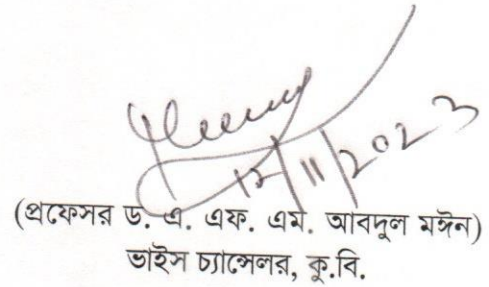 12/11/2023
(প্রফেসর ড. এ. এফ. এম. আবদুল মঈন)
ভাইস চ্যান্সেলর, কু.বি.